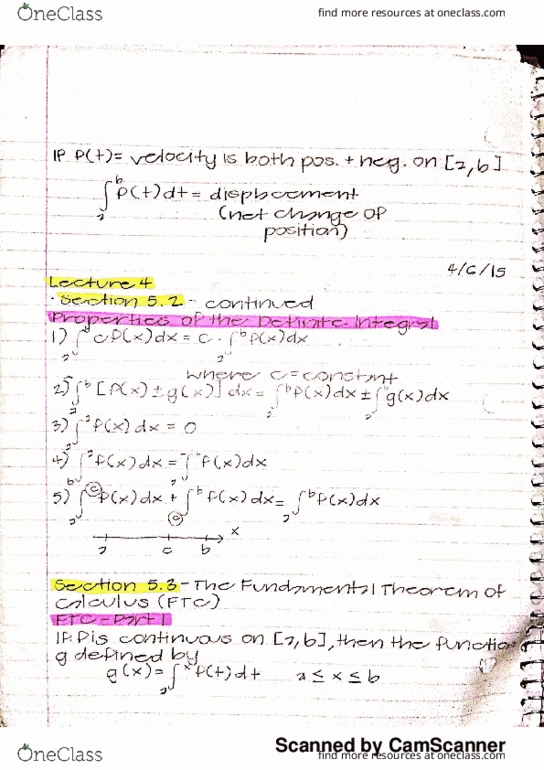 OneClass
find more resources at oneclass.com
If f(t) = velocity is both pos. + neg. on [a, b]
∫ₐᵇ f(t)dt = displacement
(net change of
position)
4/6/15
Lecture 4
· Section 5.2 - continued
Properties of the Definite Integral
1) ∫ₐᵇ cf(x)dx = c · ∫ₐᵇ f(x)dx
where c = constant
2) ∫ₐᵇ [f(x) ± g(x)] dx = ∫ₐᵇ f(x)dx ± ∫ₐᵇ g(x)dx
3) ∫ₐᵃ f(x) dx = 0
4) ∫_bᵃ f(x)dx = -∫ₐᵇ f(x)dx
5) ∫ₐᶜ f(x)dx + ∫_cᵇ f(x)dx = ∫ₐᵇ f(x)dx
a c b x
Section 5.3 - The Fundamental Theorem of
Calculus (FTC)
FTC - Part 1
If f is continuous on [a, b], then the function
g defined by
g(x) = ∫ₐˣ f(t)dt a ≤ x ≤ b
Scanned by CamScanner
OneClass
find more resources at oneclass.com